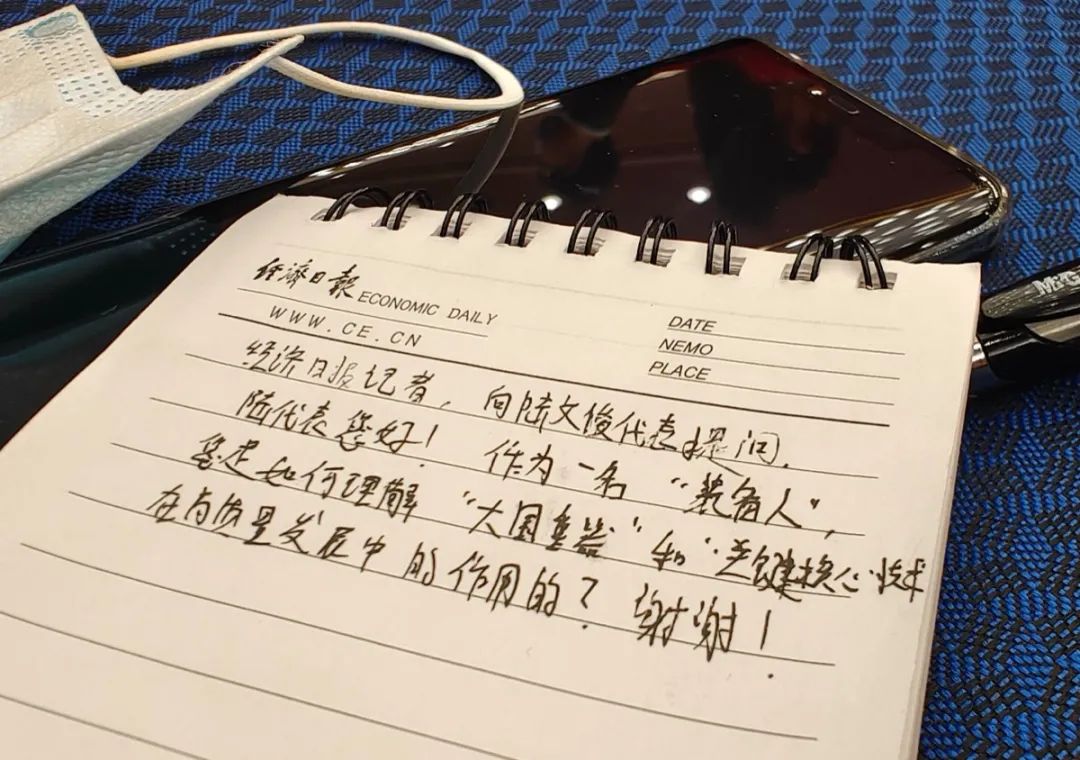 经濟日報 ECONOMIC DAILY
WWW.CE.CN
DATE
NEMO
PLACE
经济日报记者，向陆文俊代表提问.
陆代表您好！作为一名“装备人”，
您是如何理解“大国重器”和“关键核心技术
在高质量发展中的作用的？谢谢！